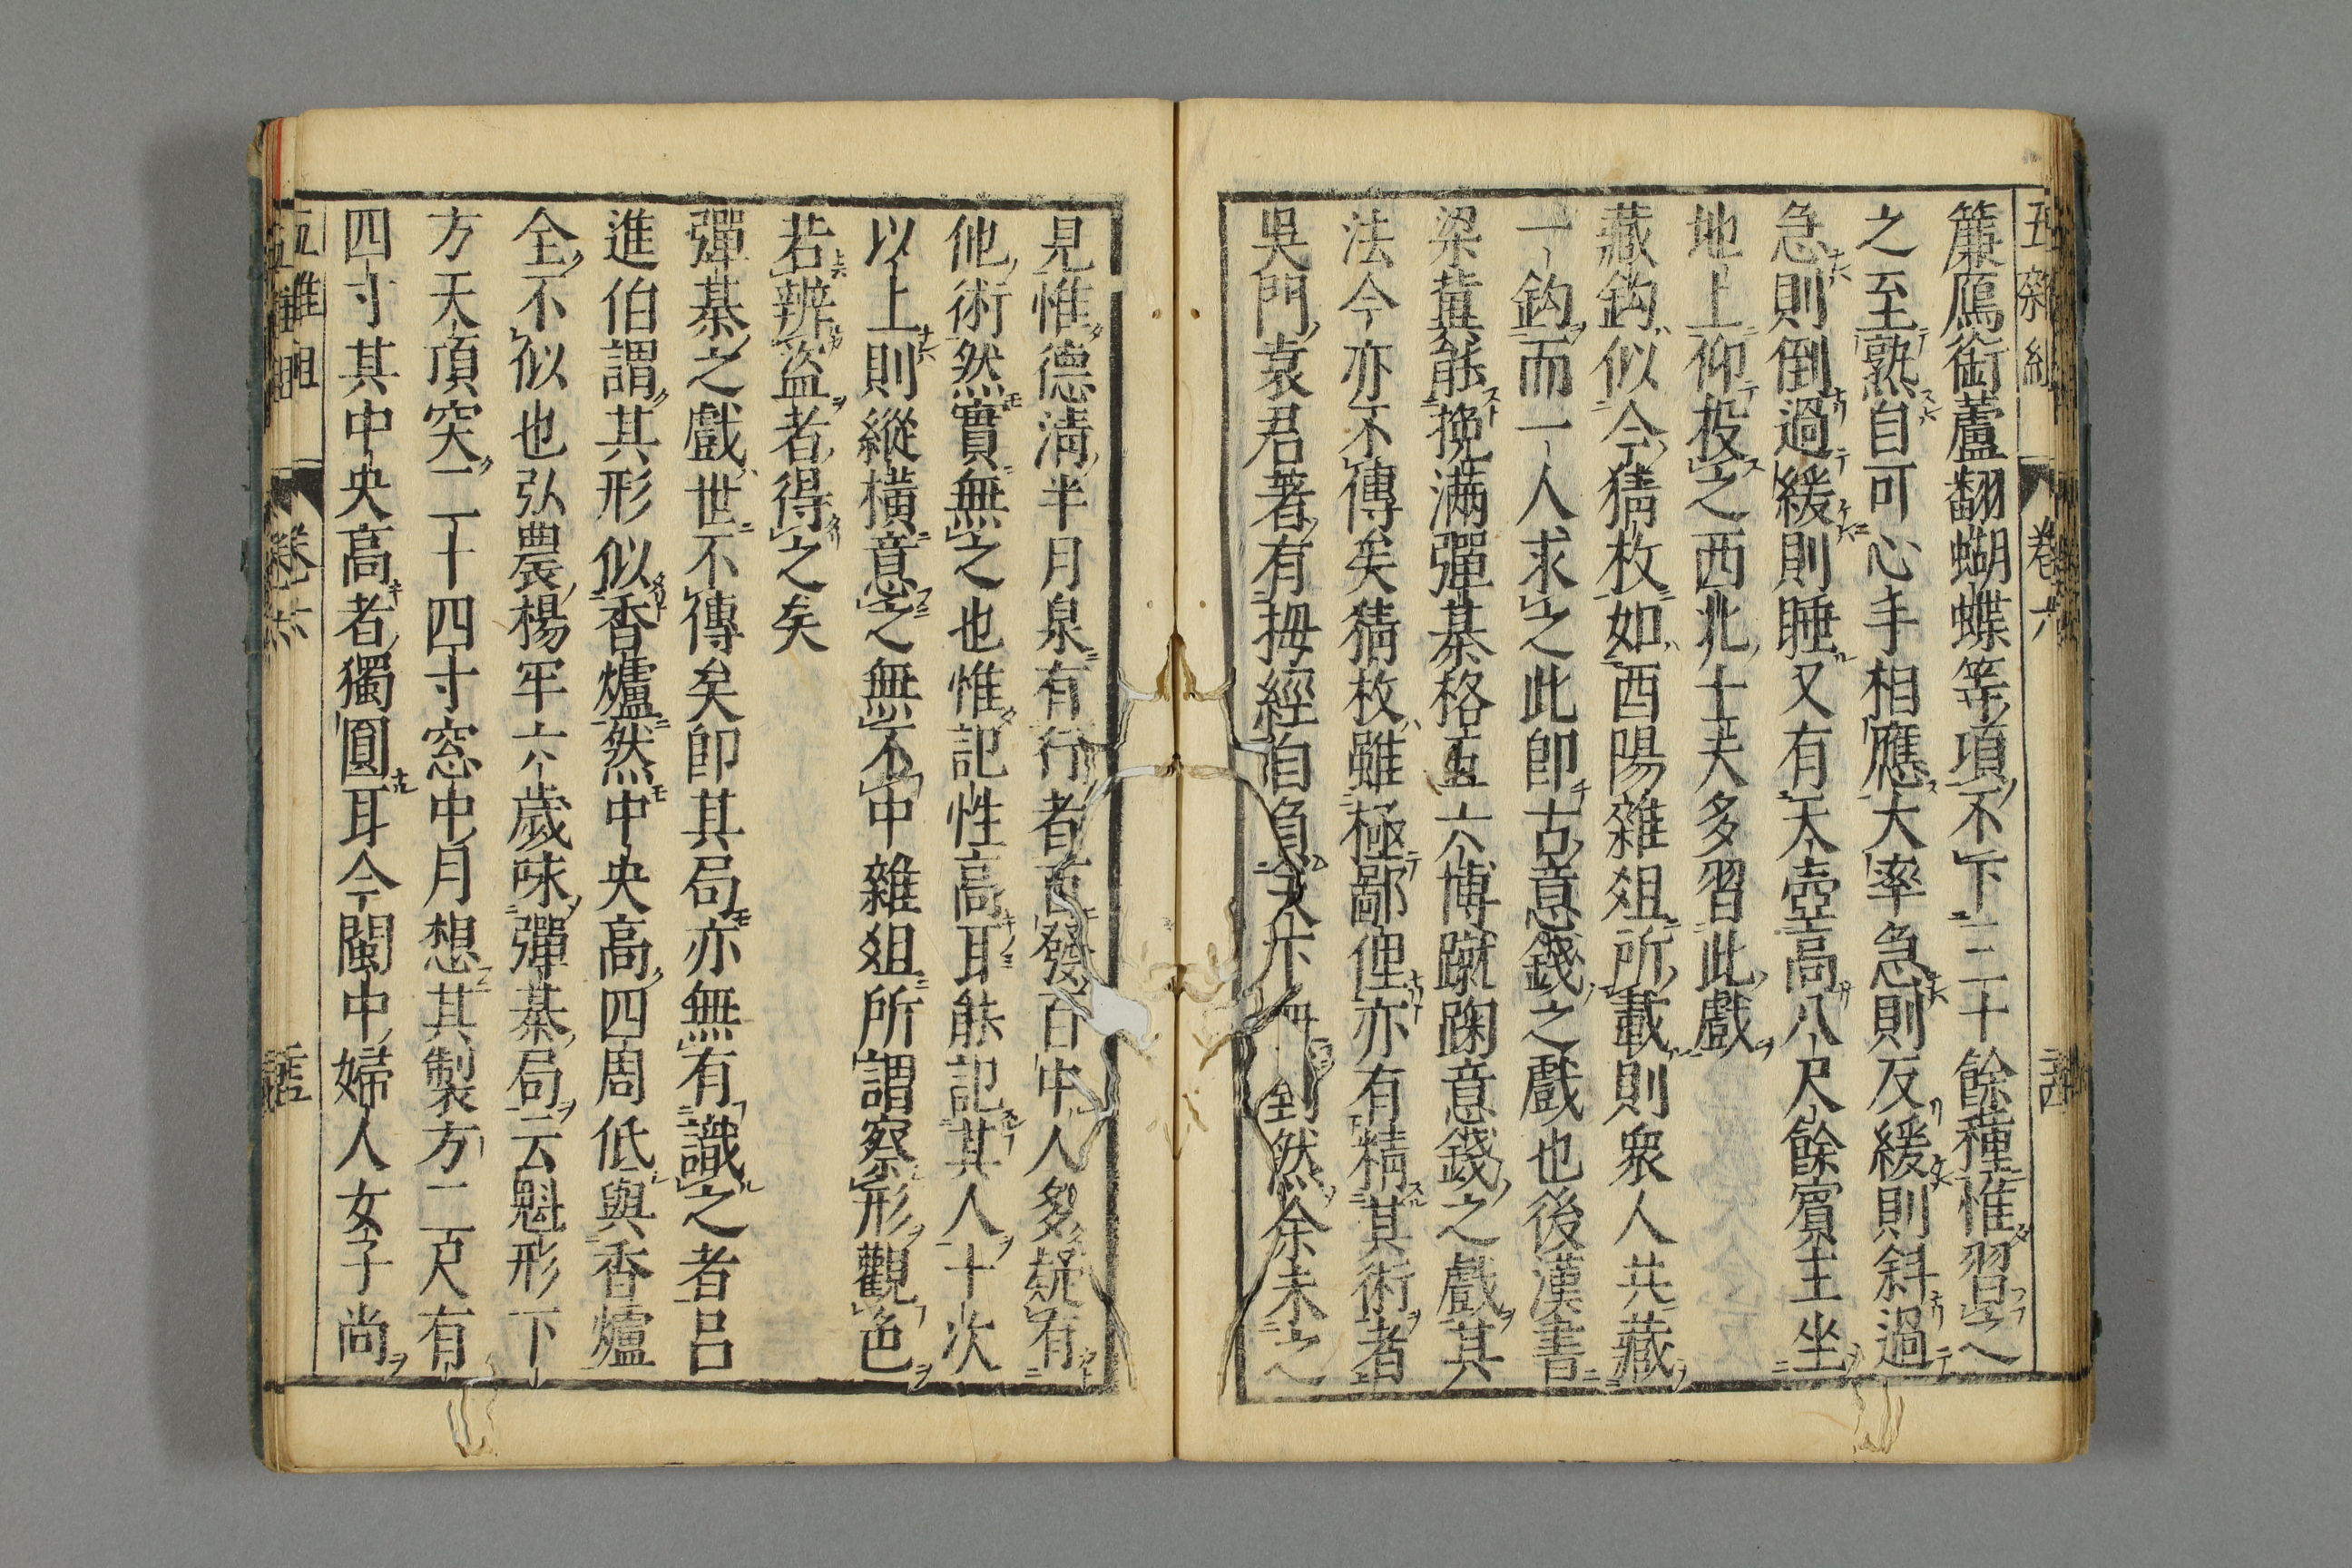 簾鴈銜蘆翻蝴蝶等項不下三十餘種惟習之
之至熟自可心手相應大率急則反緩則斜過
急則倒過緩則睡又有天壺高八尺餘賓主坐
地上仰投之西北士夫多習此戲
藏鈎似今猜枚如酉陽雜俎所載則衆人共藏
一鈎而一人求之此即古意錢之戲也後漢書
梁冀能挽滿彈棊格五六博蹴踘意錢之戲其
法今亦不傳矣猜枚雖極鄙俚亦有精其術者
吳門袁君著有拇經自負天下無對然余未之
見惟德清半月泉有行者百發百中人多疑有
他術然實無之也惟記性高耳能記其人十次
以上則縱橫意之無不中雜俎所謂察形觀色
若辨盜者得之矣
彈棊之戲世不傳矣即其局亦無有識之者呂
進伯謂其形似香爐然中央高四周低與香爐
全不似也弘農楊牢六歲咏彈棊局云魁形下
方天頂突二十四寸窓中月想其製方二尺有
四寸其中央高者獨圓耳今閩中婦人女子尚
五雜組 卷六
五雜組 卷六